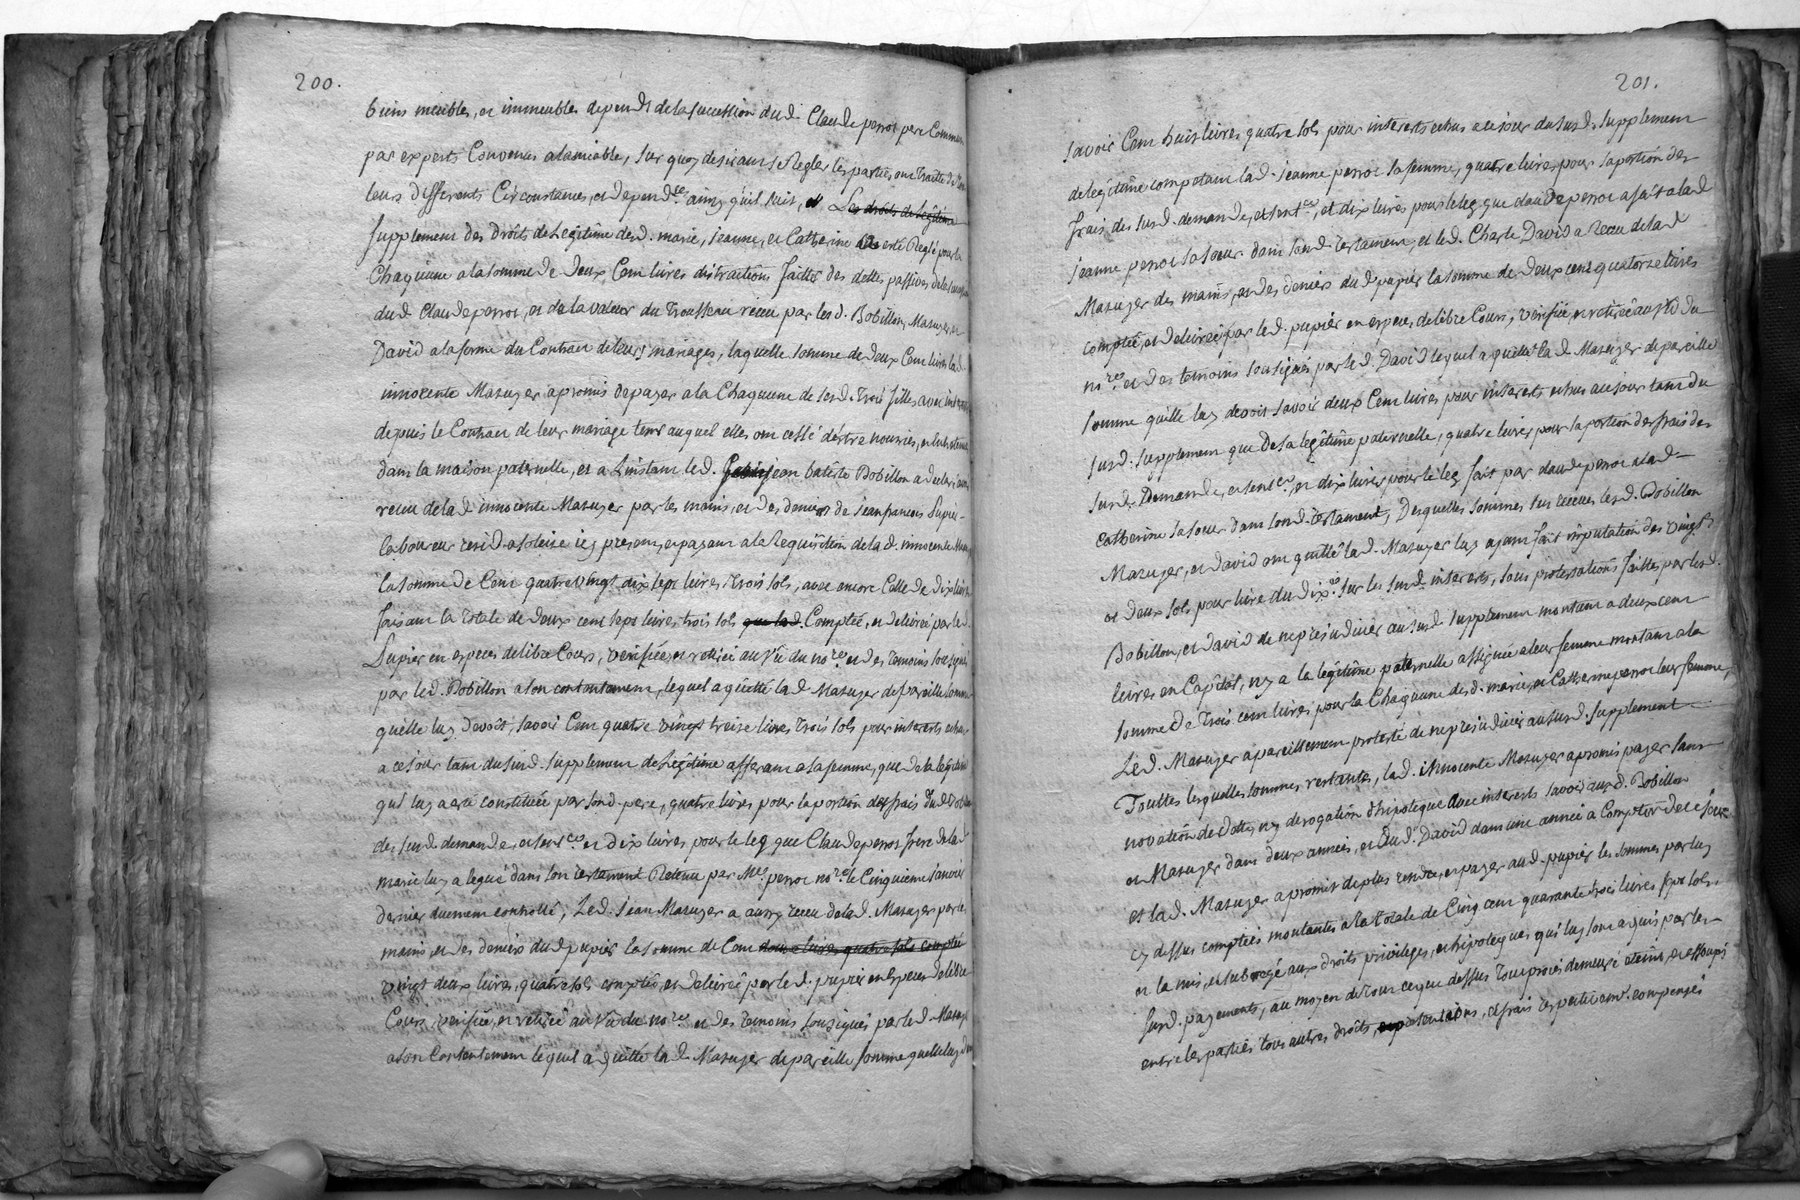 200.
biens meubles, et immeubles depend.s de la succession dud. Claude perrot pere Commun
par experts Convenus alamiable, sur quoy desirant se Regler les parties ont Traitté de
leurs differents Circonstances, et depend.ces ainsy quil suit, et Les droits de legitime
supplement des Droits de Legitime desd. marie, jeanne, et Catherine ont esté Reglé pour la
Chaquune a la somme de deux Cent livres distractions faittes des dettes passives de la succession
dud. Claude perrot, et de la valeur du Trousseau receu par lesd. Bobillon, Mazuyer, et
David a la forme du Contract de leurs mariages, laquelle somme de deux Cent livres lad.
innocente Mazuyer a promis de payer a la Chaquune de sesd. Trois filles avec interests
depuis le Contract de leur mariage tems auquel elles ont cessé déstre nourries, et
dans la maison paternelle, et a Linstant led. jean batiste Bobillon a declaré avoir
receu delad. innocente Mazuyer par les mains, et des deniers de jean francois Pupier
laboureur resid. a icy present, et payant a la Requisition delad. innocente
la somme de Cent quatre vingt dix sept livres Trois sols, avec encore Celle de dix livres
faisant la Totale de deux cent sept livres trois sols que lad. Comptée, et delivrée par led.
Pupier en especes de libre Cours, verifiée et retirée au vû du no.re et des temoins soussignés
par led. Bobillon a son contentement, lequel a quitté lad. Mazuyer de pareille somme
quelle luy devoit, savoir Cent quatre vingt treize livres Trois sols pour interests echus
a ce jour tant du susd. supplement de Legitime afferant a sa femme, que de la legitime
qui luy a eté constituée par sond. pere, quatre livres pour la portion des frais
des susd. demande, et sent.ces et dix livres pour le leg que Claude perrot frere de lad.
marie luy a legué dans son testament Retenu par M.e perrot no.re le Cinquieme janvier
dernier duement controllé, Led. jean Mazuyer a aussy receu delad. Mazuyer par les
mains, et des deniers dud. pupier la somme de Cent douze livres quatre sols comptée
vingt deux livres, quatre sols comptée, et delivrée par led. pupier en Especes de libre
Cours, verifiée, et retirée au vû du no.re et des temoins sousignés par led. Mazuyer
a son Contentement lequel a quitté lad. Mazuyer de pareille somme quelle luy
201.
savoir Cent huit livres quatre sols pour interests echus a ce jour du susd. supplement
de legitime competant lad. jeanne perrot sa femme, quatre livres pour sa portion des
frais des susd. demande, et sent.ce, et dix livres pour le leg que claude perrot a fait a lad.
jeanne perrot sa soeur dans sond. Testament, et led. Charle David a Receu delad.
Mazuyer des mains, et des deniers dud. pupier la somme de deux cent quatorze livres
comptée, et delivrée par led. pupier en especes de libre Cours, verifiée, et retirée au vû du
no.re, et des temoins sousignés par led. David lequel a quitté lad. Mazuyer de pareille
somme quelle luy devoit savoir deux Cent livres pour interests echus a ce jour tant du
susd. supplement que de sa legitime paternelle, quatre livres pour sa portion des frais des
susd. Demande, et sent.ce, et dix livres pour le leg fait par claude perrot a lad.
catherine sa soeur dans sond. testament, Desquelles sommes sus receues lesd. Bobillon
Mazuyer, et David ont quitté lad. Mazuyer luy ayant fait imputation des vingt.s
et deux sols pour livre du dix.e sur les susd. interests, sous protestations faittes par lesd.
Bobillon, et David de ne prejudicier au susd. supplement montant a deux cent
livres en Capital, ny a la legitime paternelle assignée a leur femme montant a la
somme de Trois cent livres pour la Chaquune desd. marie, et Catherine perrot leur femme,
Led. Mazuyer a pareillement protesté de ne prejudicier au susd. supplement
Touttes lesquelles sommes restantes, lad. innocente Mazuyer a promis payer sans
novation de dotte, ny derogation dhipoteque avec interests savoir aud. Bobillon
et Mazuyer dans deux années, et aud. David dans une année a Compter de ce jour
et lad. Mazuyer a promis de plus rendre, et payer aud. pupier les sommes par luy
cy dessus comptées montantes a la totale de Cinq cent quarante trois livres sept sols,
et la mis, et subrogé aux droits privileges, et hipoteques qui luy sont aquis par les
susd. payements, au moyen de tout ce que dessus Tout procés demeure eteint, et assoupi
entre les parties tous autres droits, et pretentions, et frais respectivem.t compensés